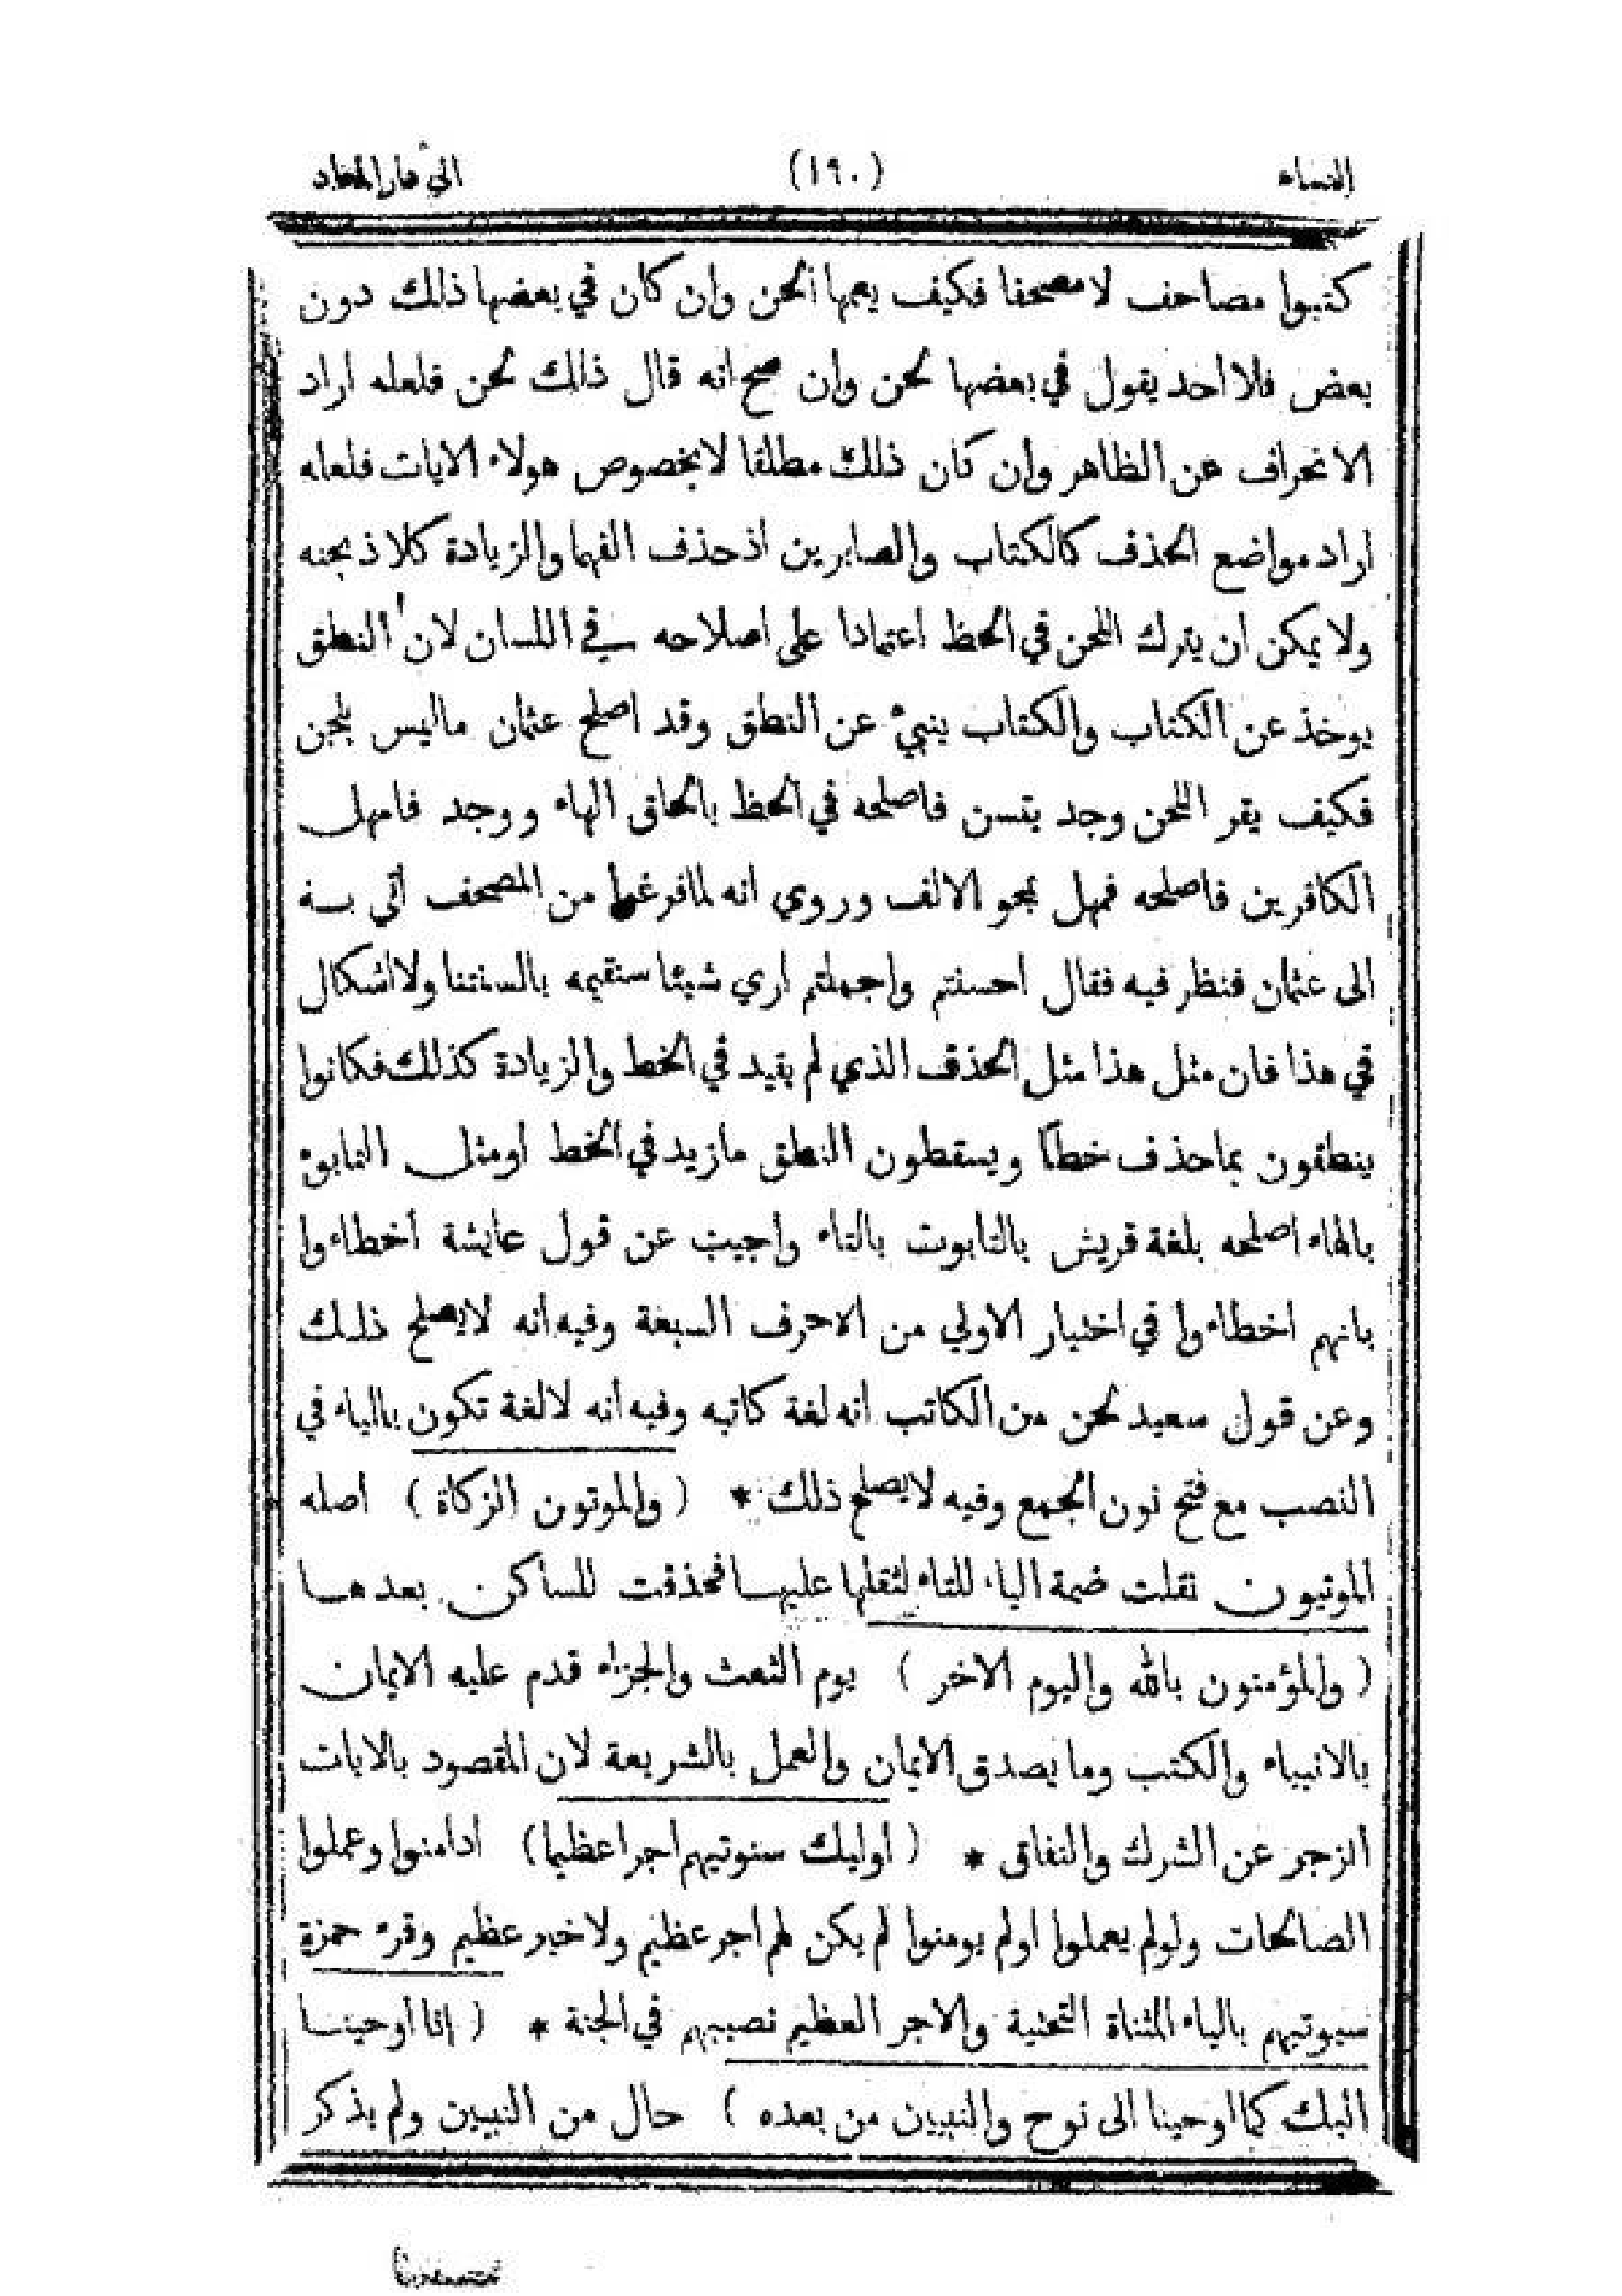 النساء (١٩٠) الى دار المعاد
كتبوا مصاحف لا مصحفا فكيف يعمها لحن وان كان في بعضها ذلك دون
بعض فلا احد يقول في بعضها لحن وان صح انه قال ذلك لحن فلعله اراد
الانحراف عن الظاهر وان كان ذلك مطلقا لا بخصوص هولاء الايات فلعله
اراد مواضع الحذف كالكتاب والصابرين اذ حذف الفهما والزيادة كلا ذبحنه
ولا يمكن ان يترك اللحن في الخط اعتمادا على اصلاحه في اللسان لان النطق
يوخذ عن الكتاب والكتاب ينبيء عن النطق وقد اصلح عثمان ما ليس بلحن
فكيف يقر اللحن وجد يتسن فاصلحه في الخط بالحاق الهاء ووجد فامهل
الكافرين فاصلحه فمهل بمحو الالف وروي انه لما فرغوا من المصحف أتي به
الى عثمان فنظر فيه فقال احسنتم واجملتم اري شيئا سنقيمه بالسنتنا ولا اشكال
في هذا فان مثل هذا مثل الحذف الذي لم يقيد في الخط والزيادة كذلك فكانوا
ينطقون بما حذف خطاً ويسقطون النطق ما زيد في الخط أو مثل التابوة
بالهاء اصلحه بلغة قريش بالتابوت بالتاء وأجيب عن قول عايشة أخطاءوا
بانهم اخطاءوا في اختيار الاولي من الاحرف السبعة وفيه أنه لا يصلح ذلك
وعن قول سعيد لحن من الكاتب انه لغة كاتبه وفيه أنه لا لغة تكون بالياء في
النصب مع فتح نون الجمع وفيه لا يصلح ذلك * ( والموتون الزكاة ) اصله
الموتيون نقلت ضمة الياء للتاء لثقلها عليها فحذفت للساكن بعدها
( والمؤمنون بالله واليوم الاخر ) يوم البعث والجزاء قدم عليه الايمان
بالانبياء والكتب وما يصدق الايمان والعمل بالشريعة لان المقصود بالايات
الزجر عن الشرك والنفاق * ( أوليك سنوتيهم اجرا عظيما ) اذ امنوا وعملوا
الصالحات ولو لم يعملوا او لم يومنوا لم يكن لهم اجر عظيم ولا خير عظيم وقرء حمزة
سيوتيهم بالياء المثناة التحتية والاجر العظيم نصيبهم في الجنة * ( إنا أوحينا
اليك كما اوحينا الى نوح والنبيين من بعده ) حال من النبيين ولم يذكر